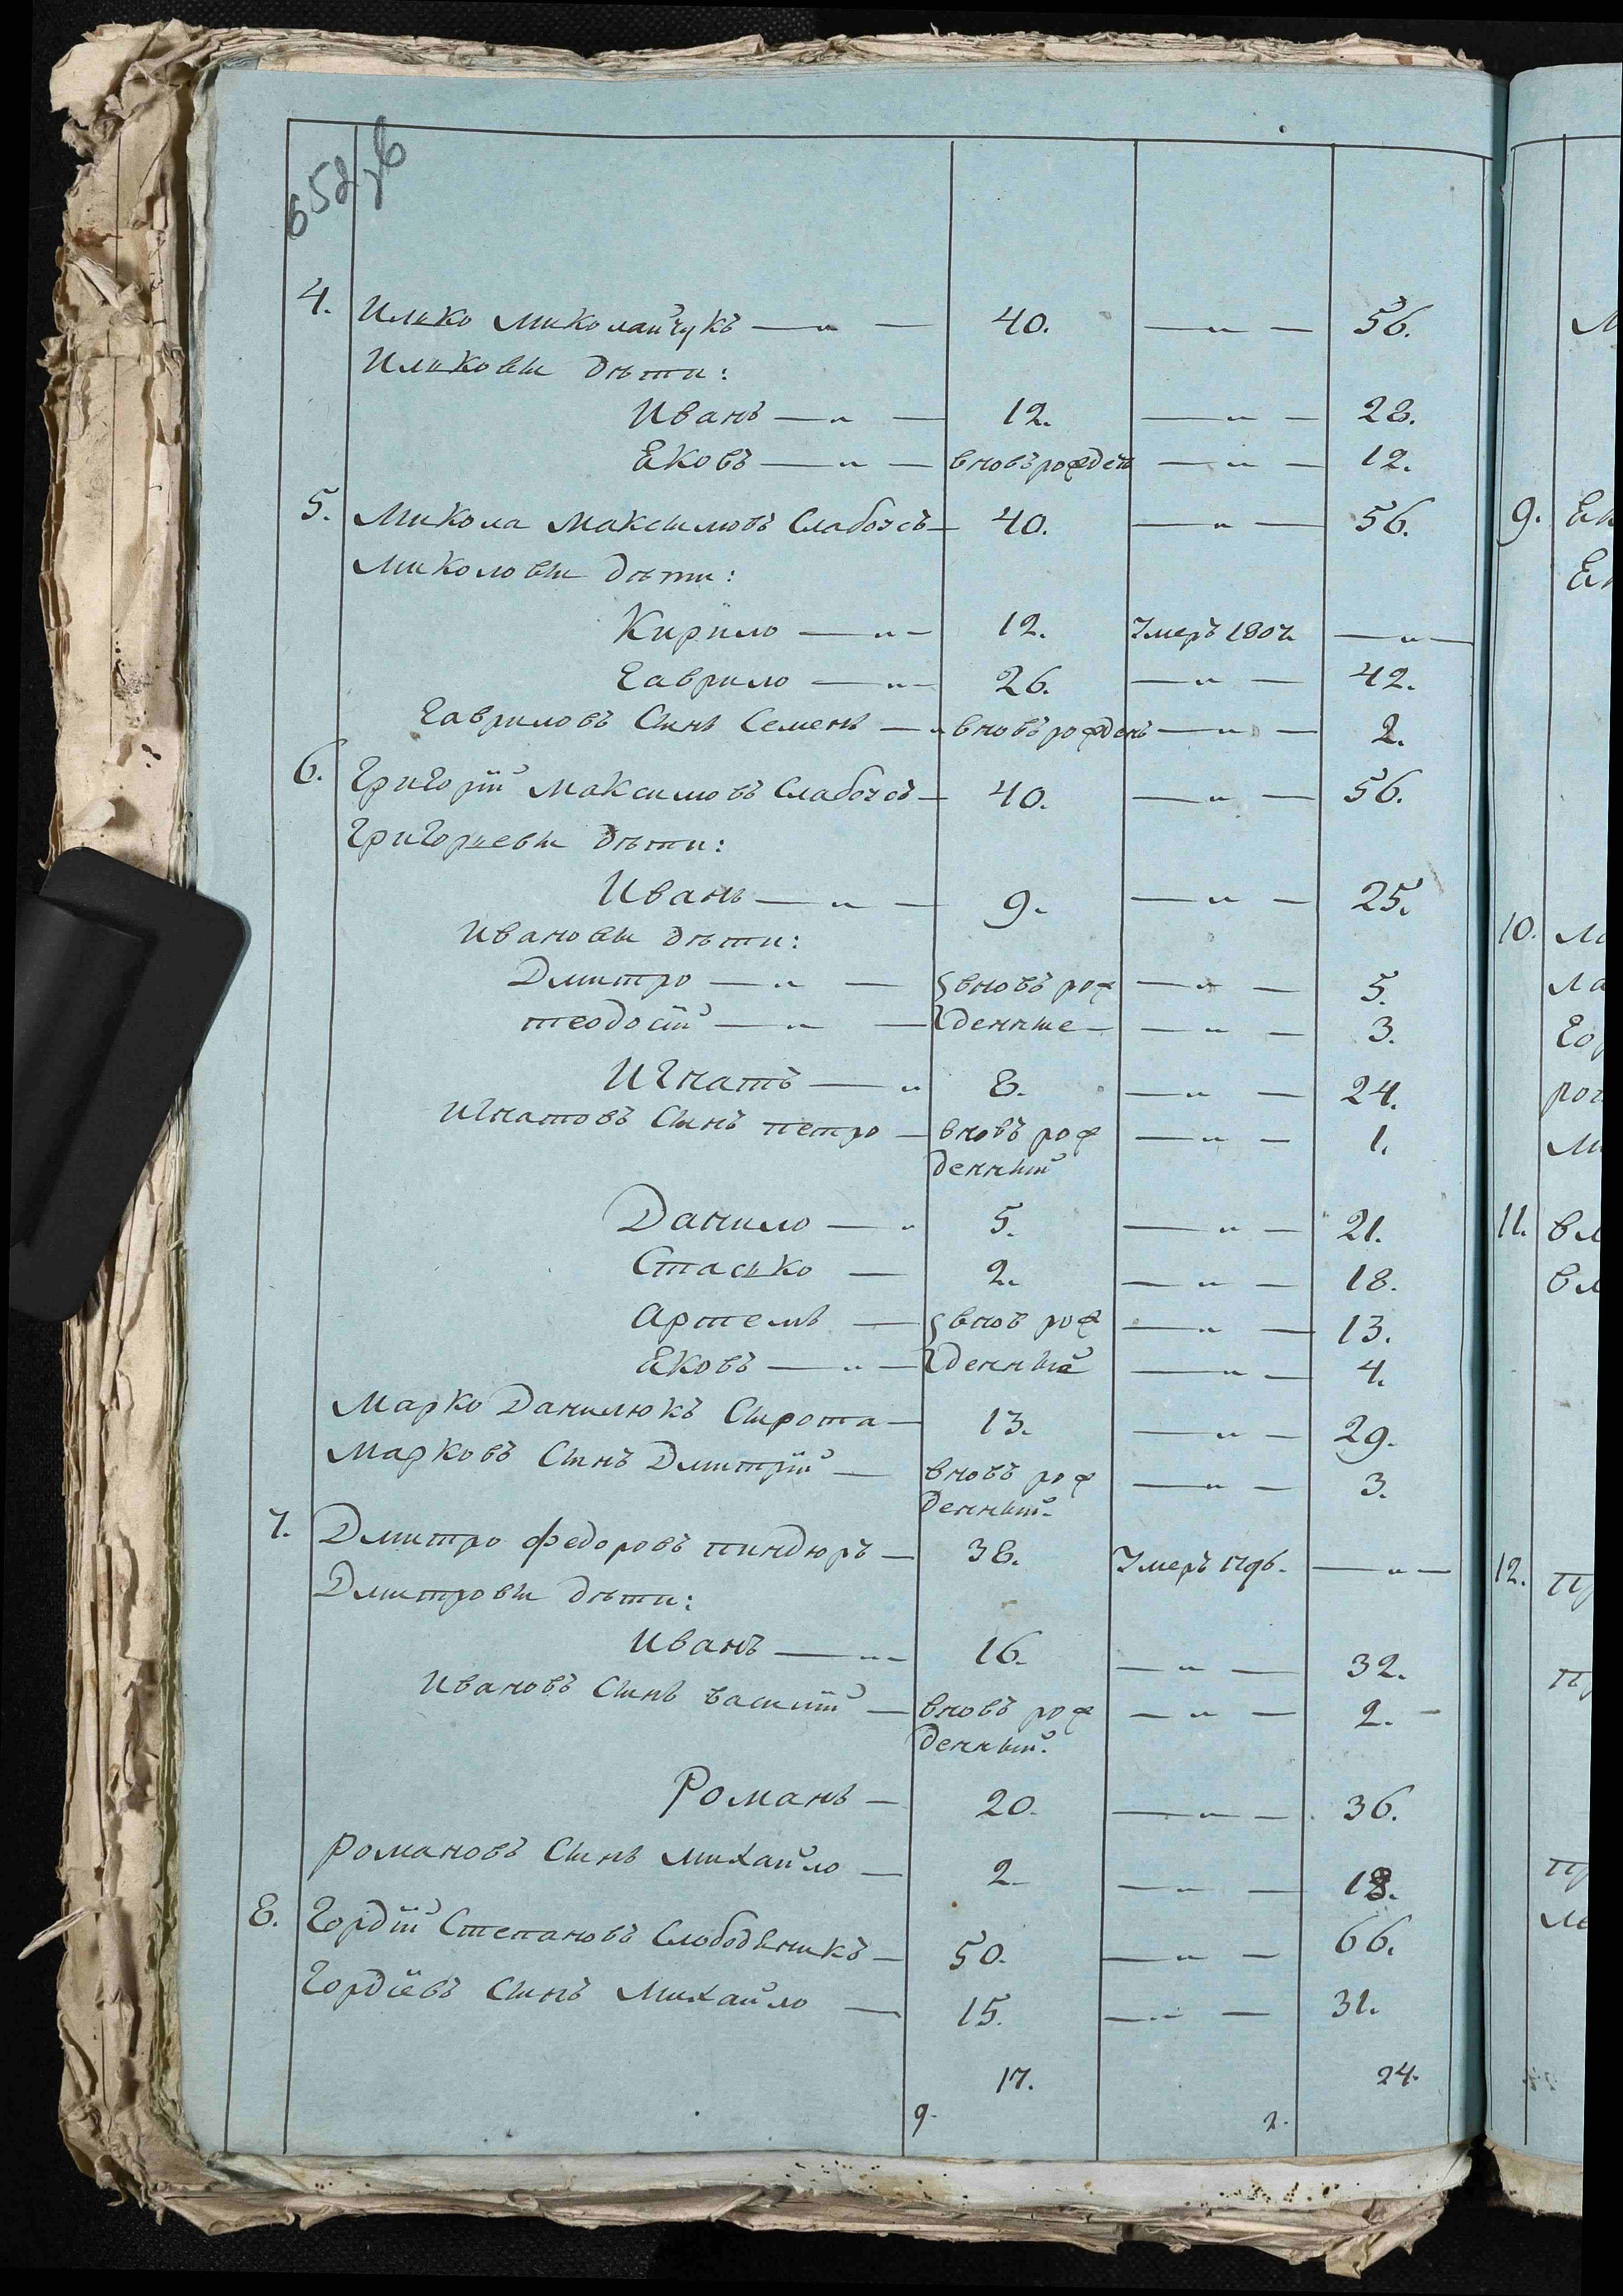 652 зв
4. Илько Миколайчукъ — „ — 40. — „ — 56.
Ильковы дѣти:
Иванъ — „ — 12. — „ — 28.
Яковъ — „ — вновьрожденъ — „ — 12.
5. Микола Максимовъ Слабосъ — 40. — „ — 56.
Миколовы дѣти:
Кирило — „ — 12. Умеръ 1807. — „ —
Гаврило — „ — 26. — „ — 42.
Гавриловъ Сынъ Семенъ — „ вновьрожденъ — „ — 2.
6. Григорій Максимовъ Слабосъ — 40. — „ — 56.
Григорьевы дѣти:
Иванъ — „ — 9. — „ — 25.
Ивановы дѣти:
Дмитро — „ — вновь рож — „ — 5.
Теодосій — „ — денные — — „ — 3.
Игнатъ — „ 8. — „ — 24.
Игнатовъ Сынъ Петро — вновь рож — „ — 1.
денный
Данило — „ 5. — „ — 21.
Стасько — 2. — „ — 18.
Артемъ — вновь рож — „ — 13.
Яковъ — „ — денные — „ — 4.
Марко Данилюкъ Сырота — 13. — „ — 29.
Марковъ Сынъ Дмитрій — вновь рож — „ — 3.
денный.
7. Дмитро Федоровъ Пиндюръ — 38. Умеръ 1796. — „ —
Дмитровы дѣти:
Иванъ — „ — 16. — „ — 32.
Ивановъ Сынъ Василій — вновь рож — „ — 2. —
денный.
Романъ — 20. — „ — 36.
Романовъ Сынъ Михайло — 2. — „ — 18.
8. Гордій Степановъ Слободяникъ — 50. — „ — 66.
Гордіевъ Сынъ Михайло — 15. — „ — 31.
17. 24.
9. 2.
9.
10.
11.
12.